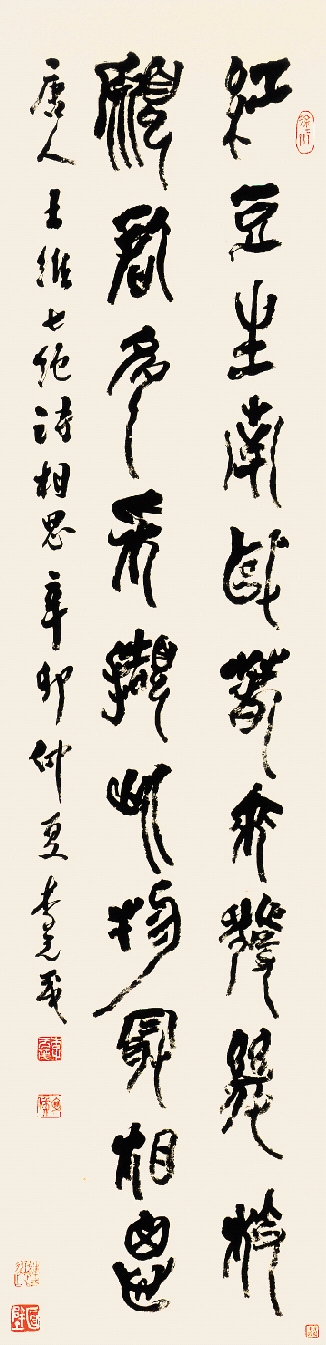 紅豆生南國春來發幾枝
願君多采擷此物最相思
唐人王維七絕詩相思辛卯仲夏李元茂